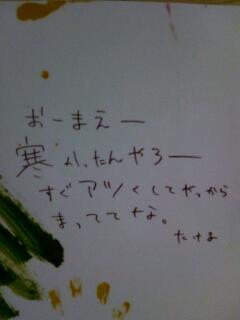 おーまえー
寒かったんやろー
すぐアツくしてやっから
まっててな。
たけま